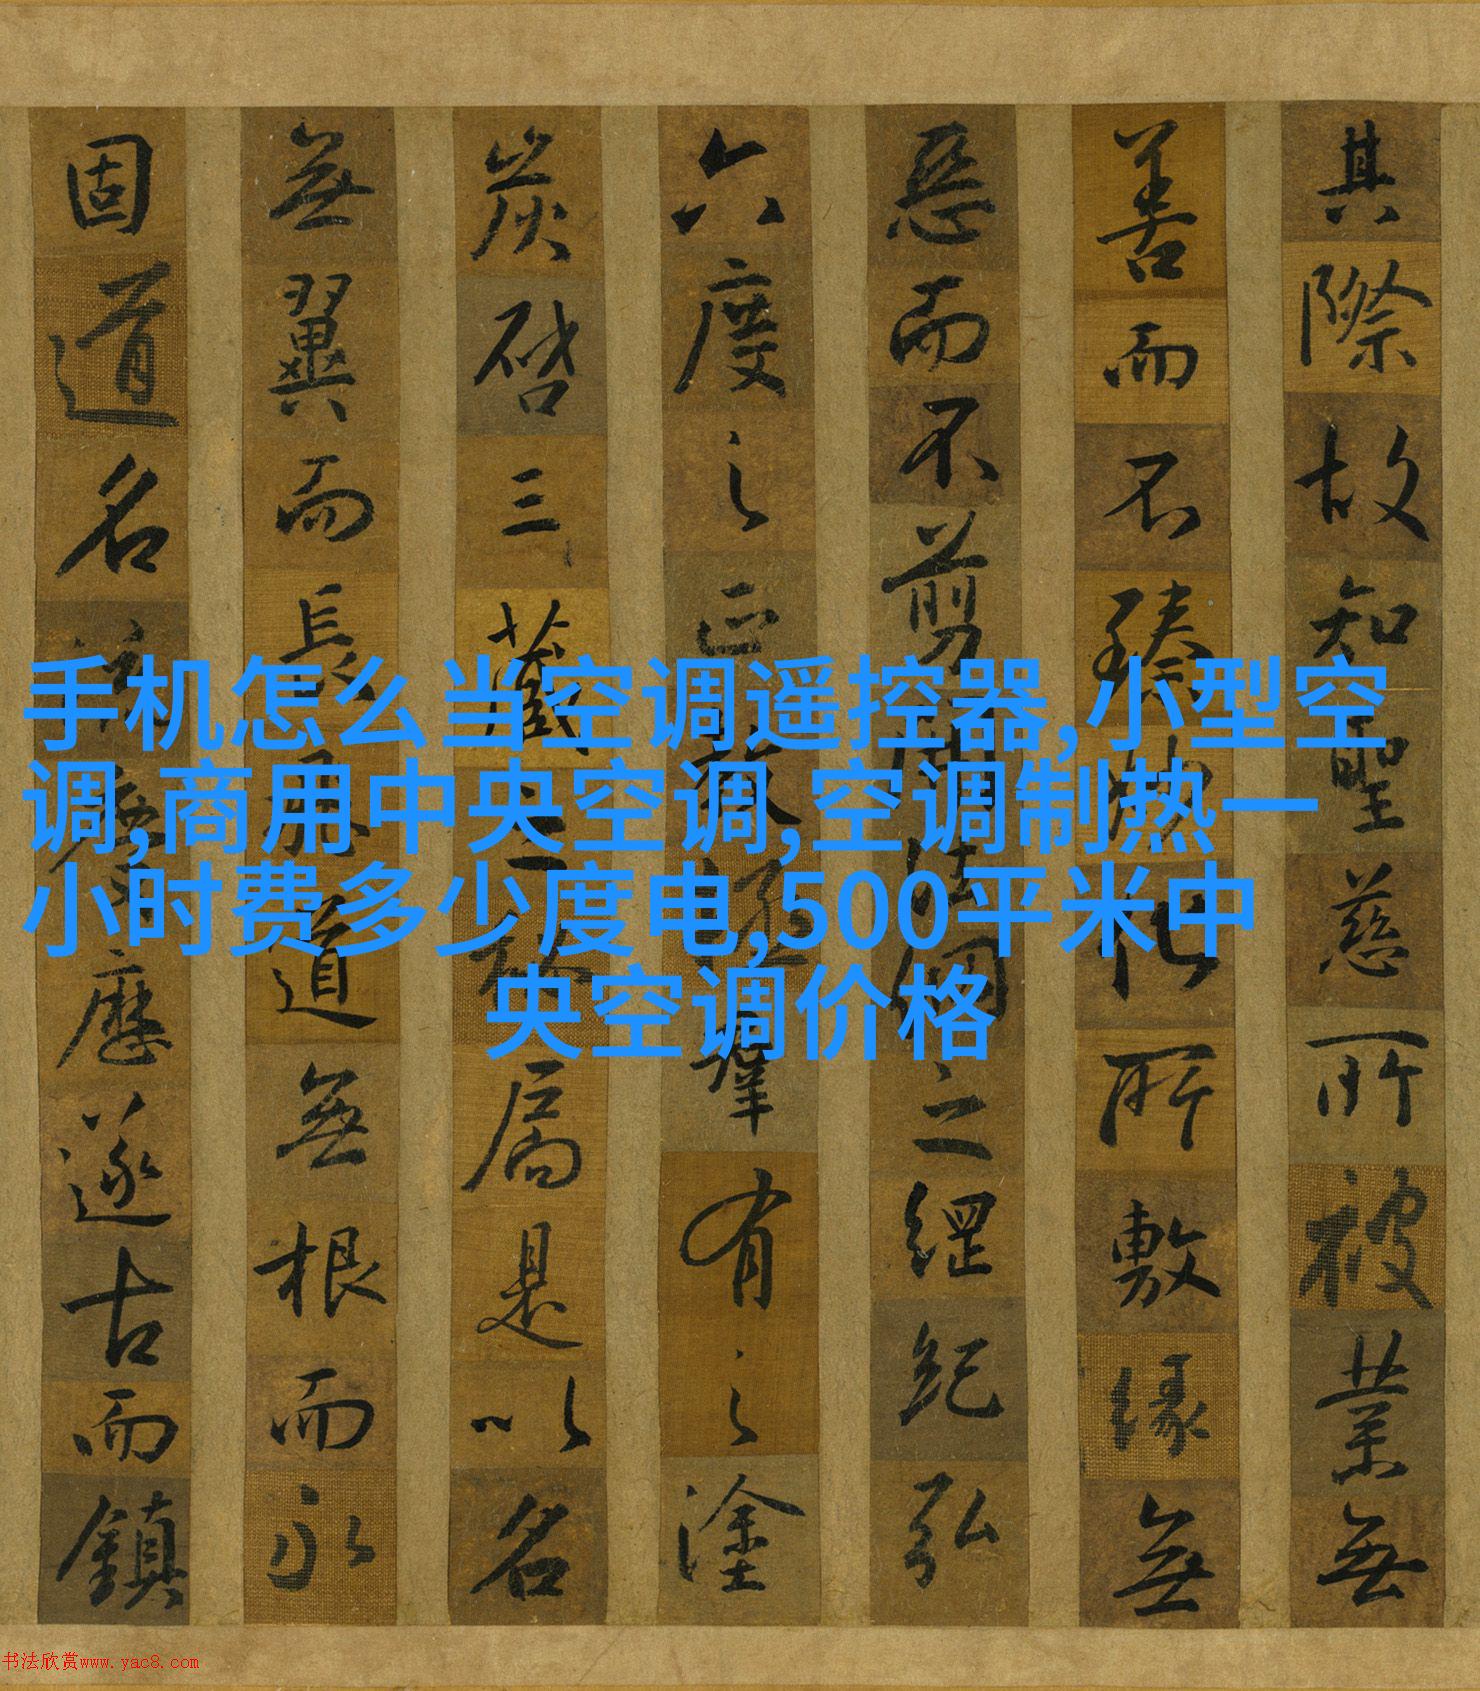 手机怎么当空调遥控器,小型空
调,商用中央空调,空调制热一
小时费多少度电,500平米中
央空调价格
其際故知聖慈所被業無
善而不臻妙化所敷緣無
惡而不剪開法網之綱紀弘
六度之正教拯羣有之塗
炭啓三藏之秘扃是以名
無翼而長飛道無根而永
固道名流慶歷遂古而鎮
书法欣赏www.yac8.com